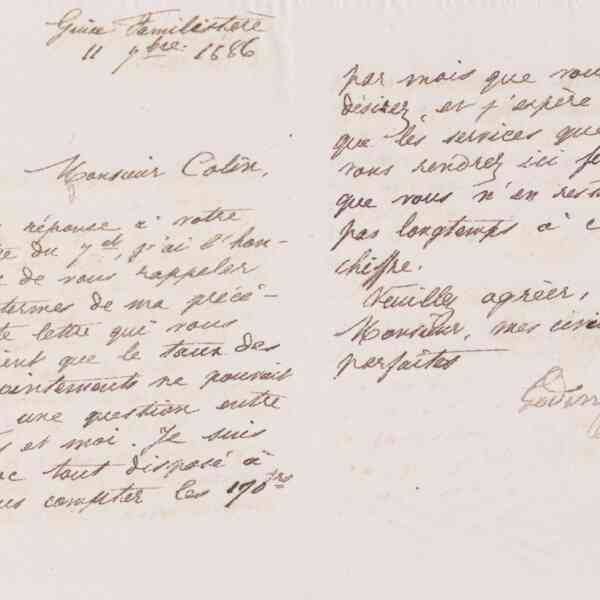 Guise Familistère
11 7bre. 1886
Monsieur Colin,
réponse à votre
du 7 ct, j'ai l'hon-
de vous rappeler
termes de ma précé-
te lettre qui vous
ent que le taux des
ointements ne pouvait
une question entre
s et moi. Je suis
nc tout disposé à
us compter les 170 frs
par mois que vou
désirez et j'espère
que les services que
vous rendrez ici fe
que vous n'en rest
pas longtemps à c
chiffre.
Veuillez agréer,
Monsieur, mes civi
parfaites
Godin